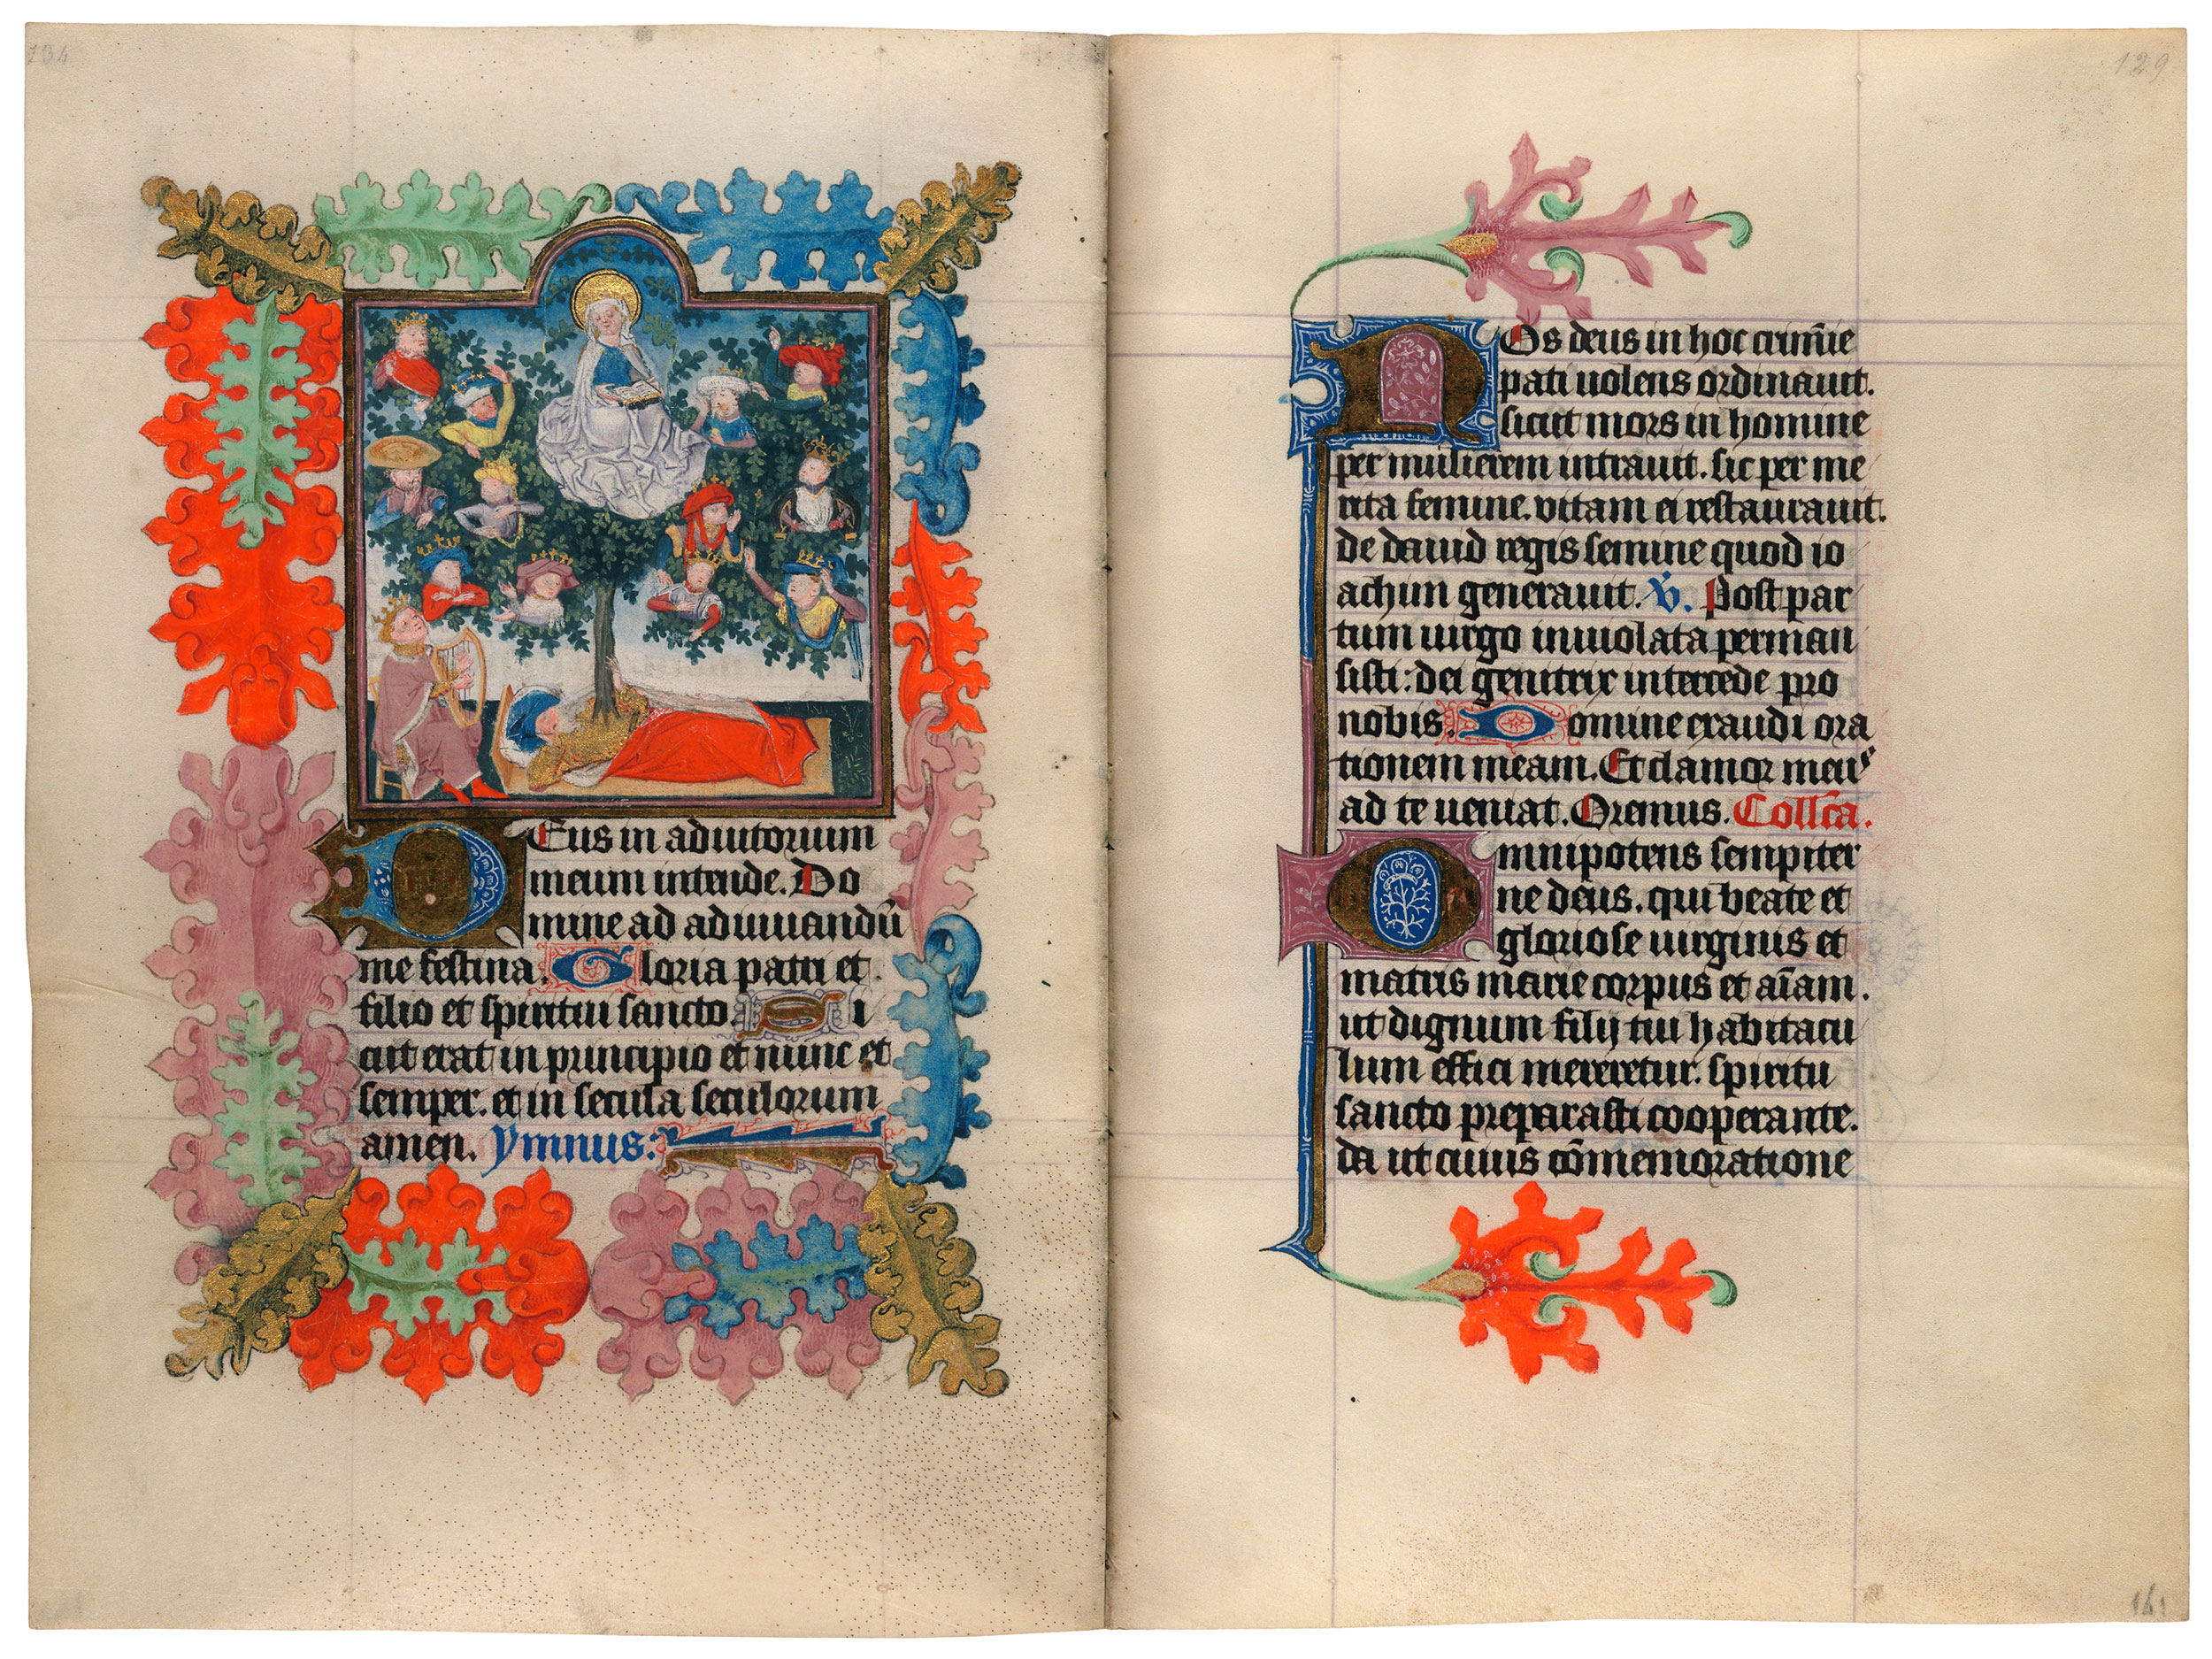 134
Deus in adiutorium
meum intende. Do
mine ad adiuuandū
me festina. Gloria patri et
filio et spiritui sancto. Si
cut erat in principio et nunc et
semper. et in secula seculorum
amen. Ymnus:
129
Nos deus in hoc crimīe
pati uolens ordinauit.
sicut mors in homine
per mulierem intrauit. sic per me
rita femine. vitam ei restaurauit.
de dauid regis semine quod io
achim generauit. v̇. Post par
tum uirgo inuiolata perman
sisti: dei genitrix intercede pro
nobis. Domine exaudi ora
tionem meam. Et clamor meuꝰ
ad te ueniat. Oremus. Collc̄a.
Omnipotens sempiter
ne deus. qui beate et
gloriose uirginis et
matris marie corpus et aīam.
ut dignum filij tui habitacu
lum effici mereretur. spiritu
sancto preparasti cooperante.
da ut cuius cōmemoratione
161